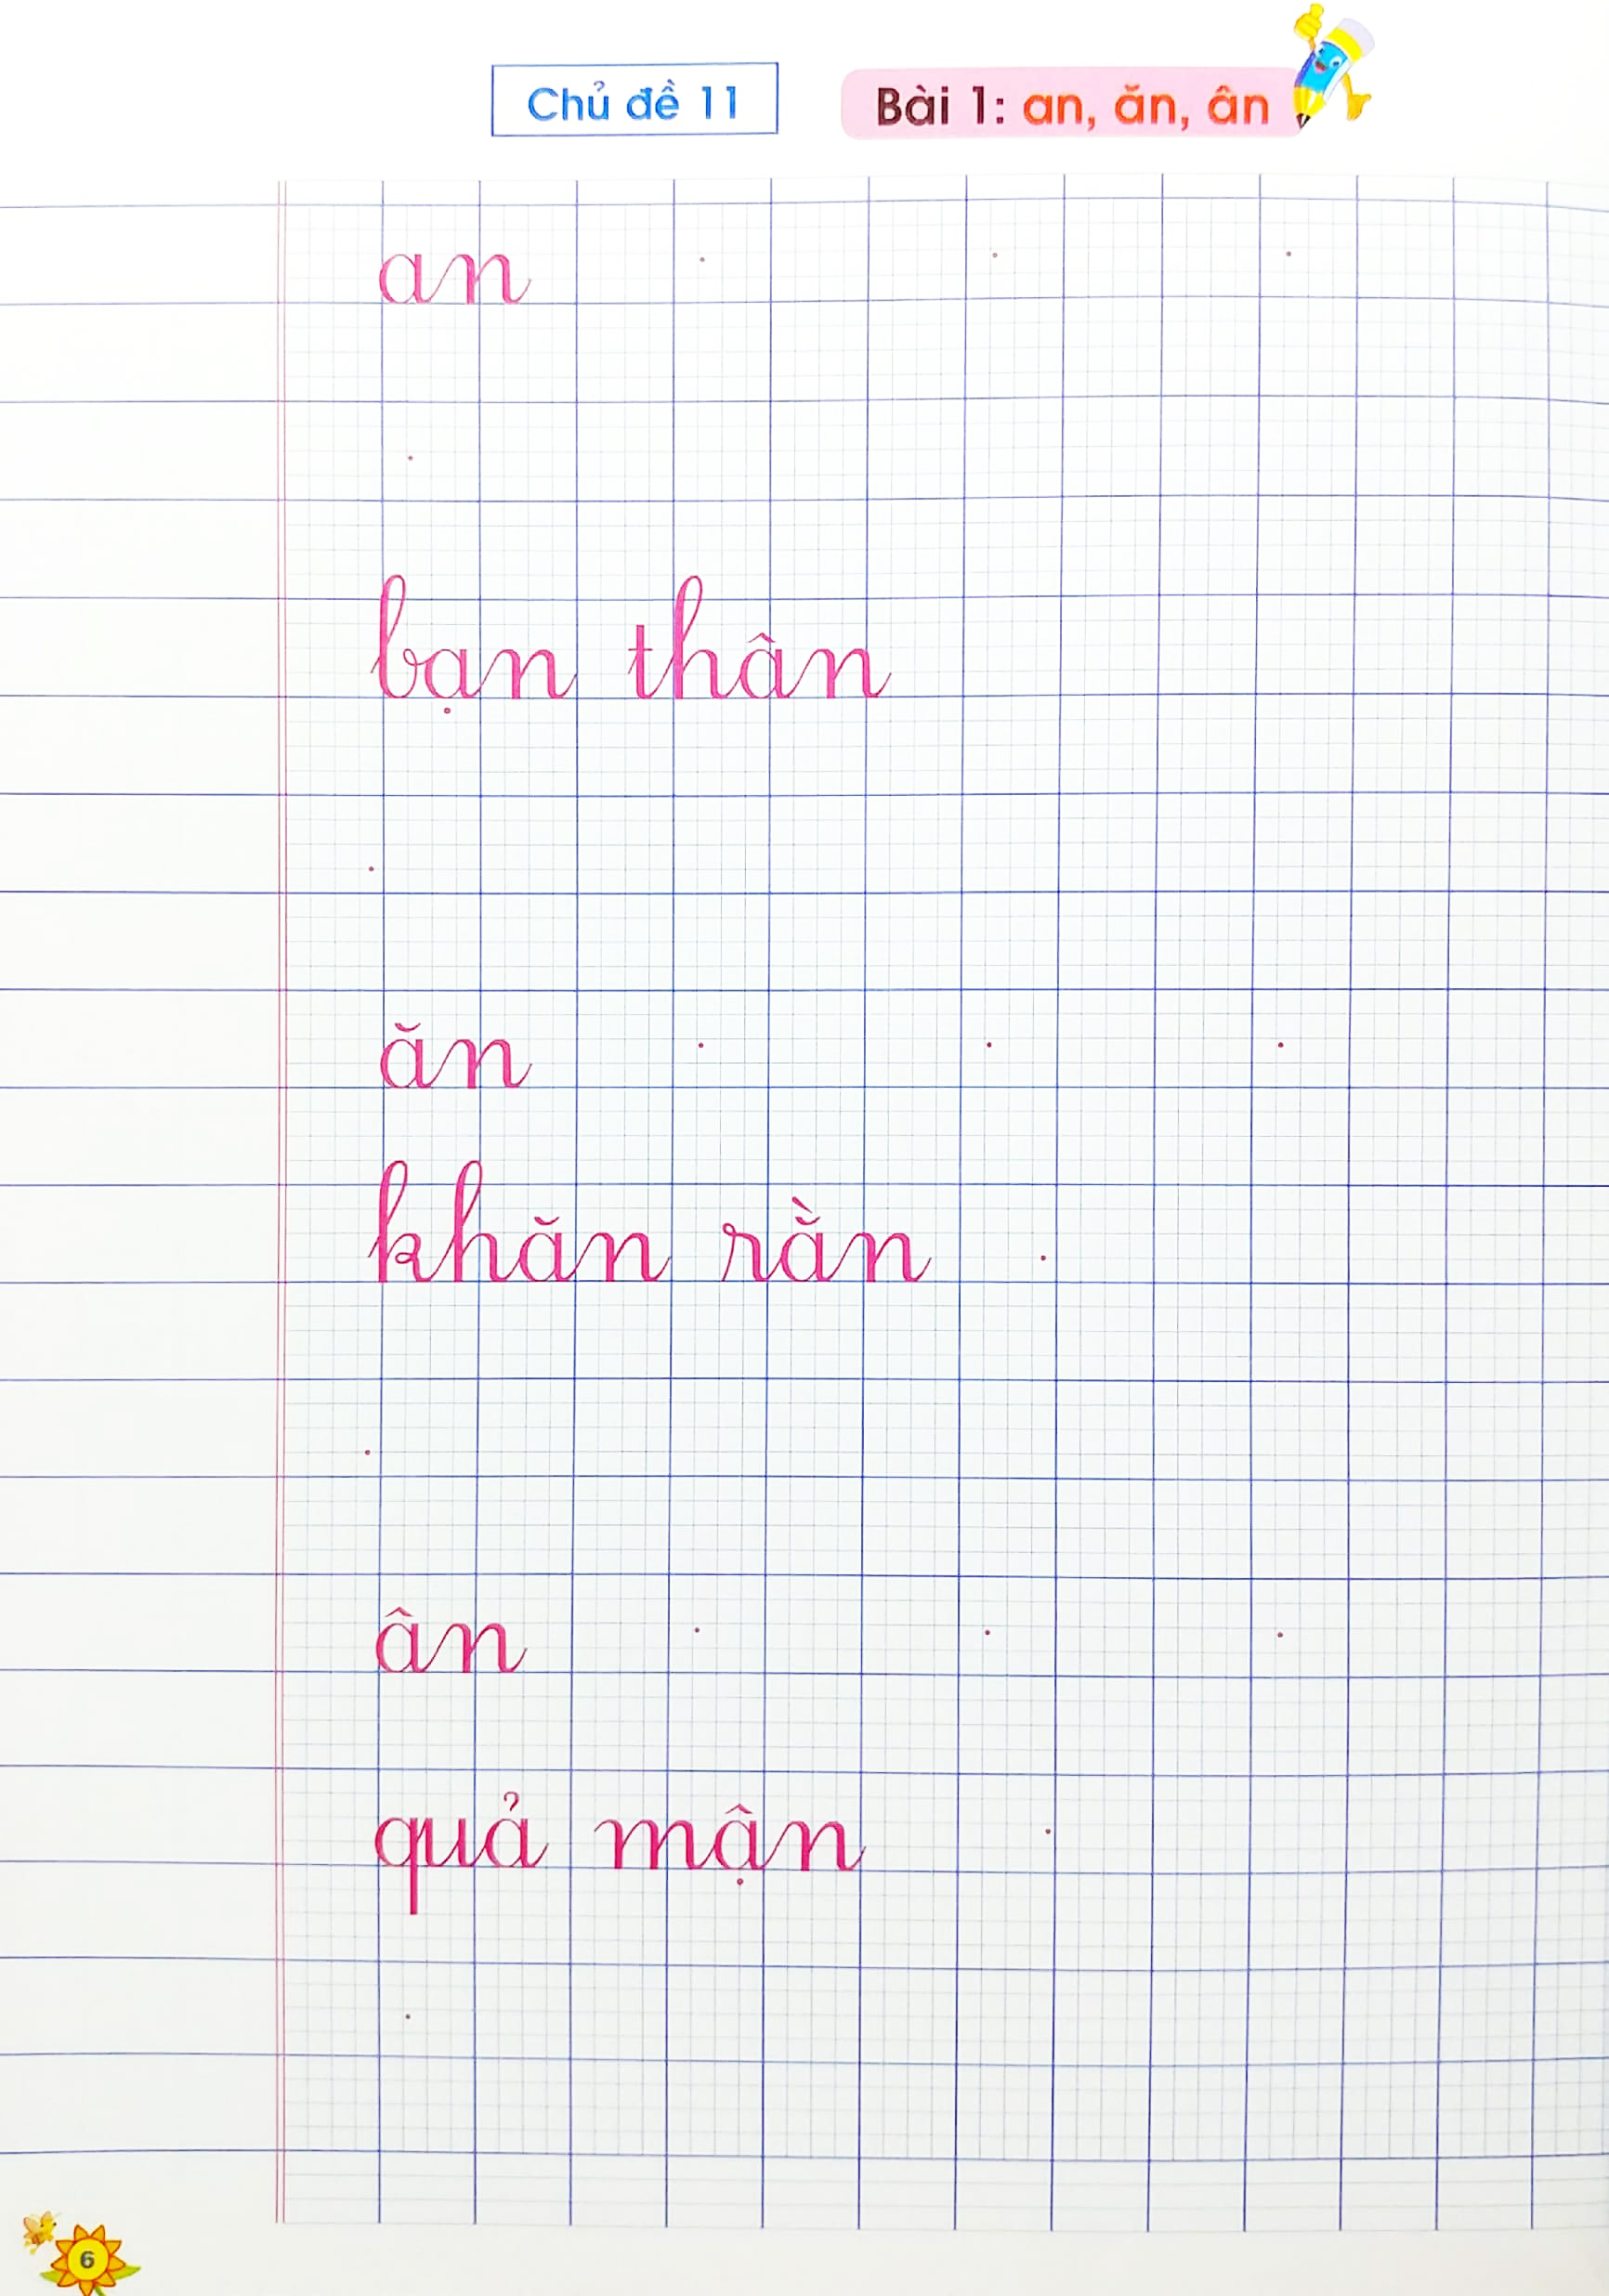 Chủ đề 11 Bài 1: an, ăn, ân
an
bạn thân
ăn
khăn rằn
ân
quả mận
6